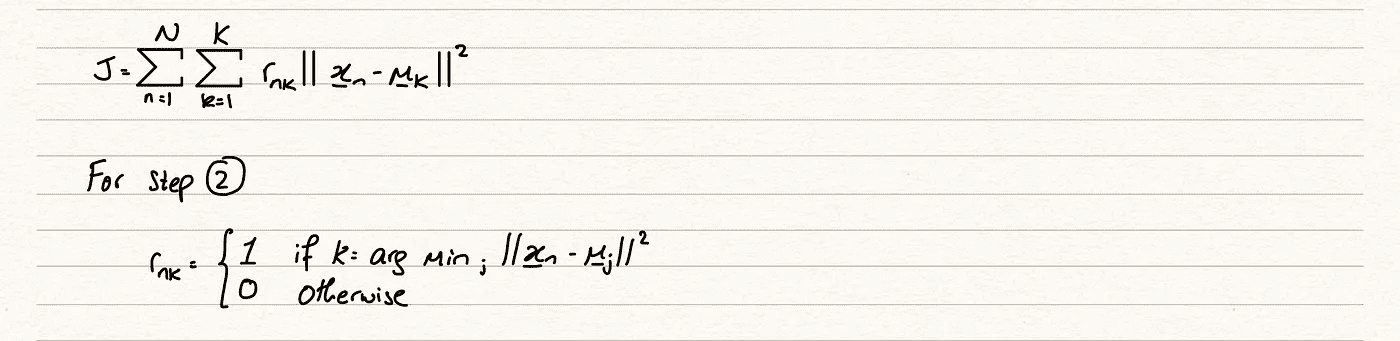 J = \sum_{n=1}^{N} \sum_{k=1}^{K} r_{nk} || \underline{x}_n - \underline{\mu}_k ||^2
For Step ②
r_{nk} = \begin{cases} 1 & \text{if } k = \arg\min_j || \underline{x}_n - \underline{\mu}_j ||^2 \\ 0 & \text{otherwise} \end{cases}